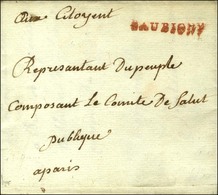 aux Citoyent
DAUBIGNY
Represantant Du peuple
Composant Le Comite De Salut
publique
a paris